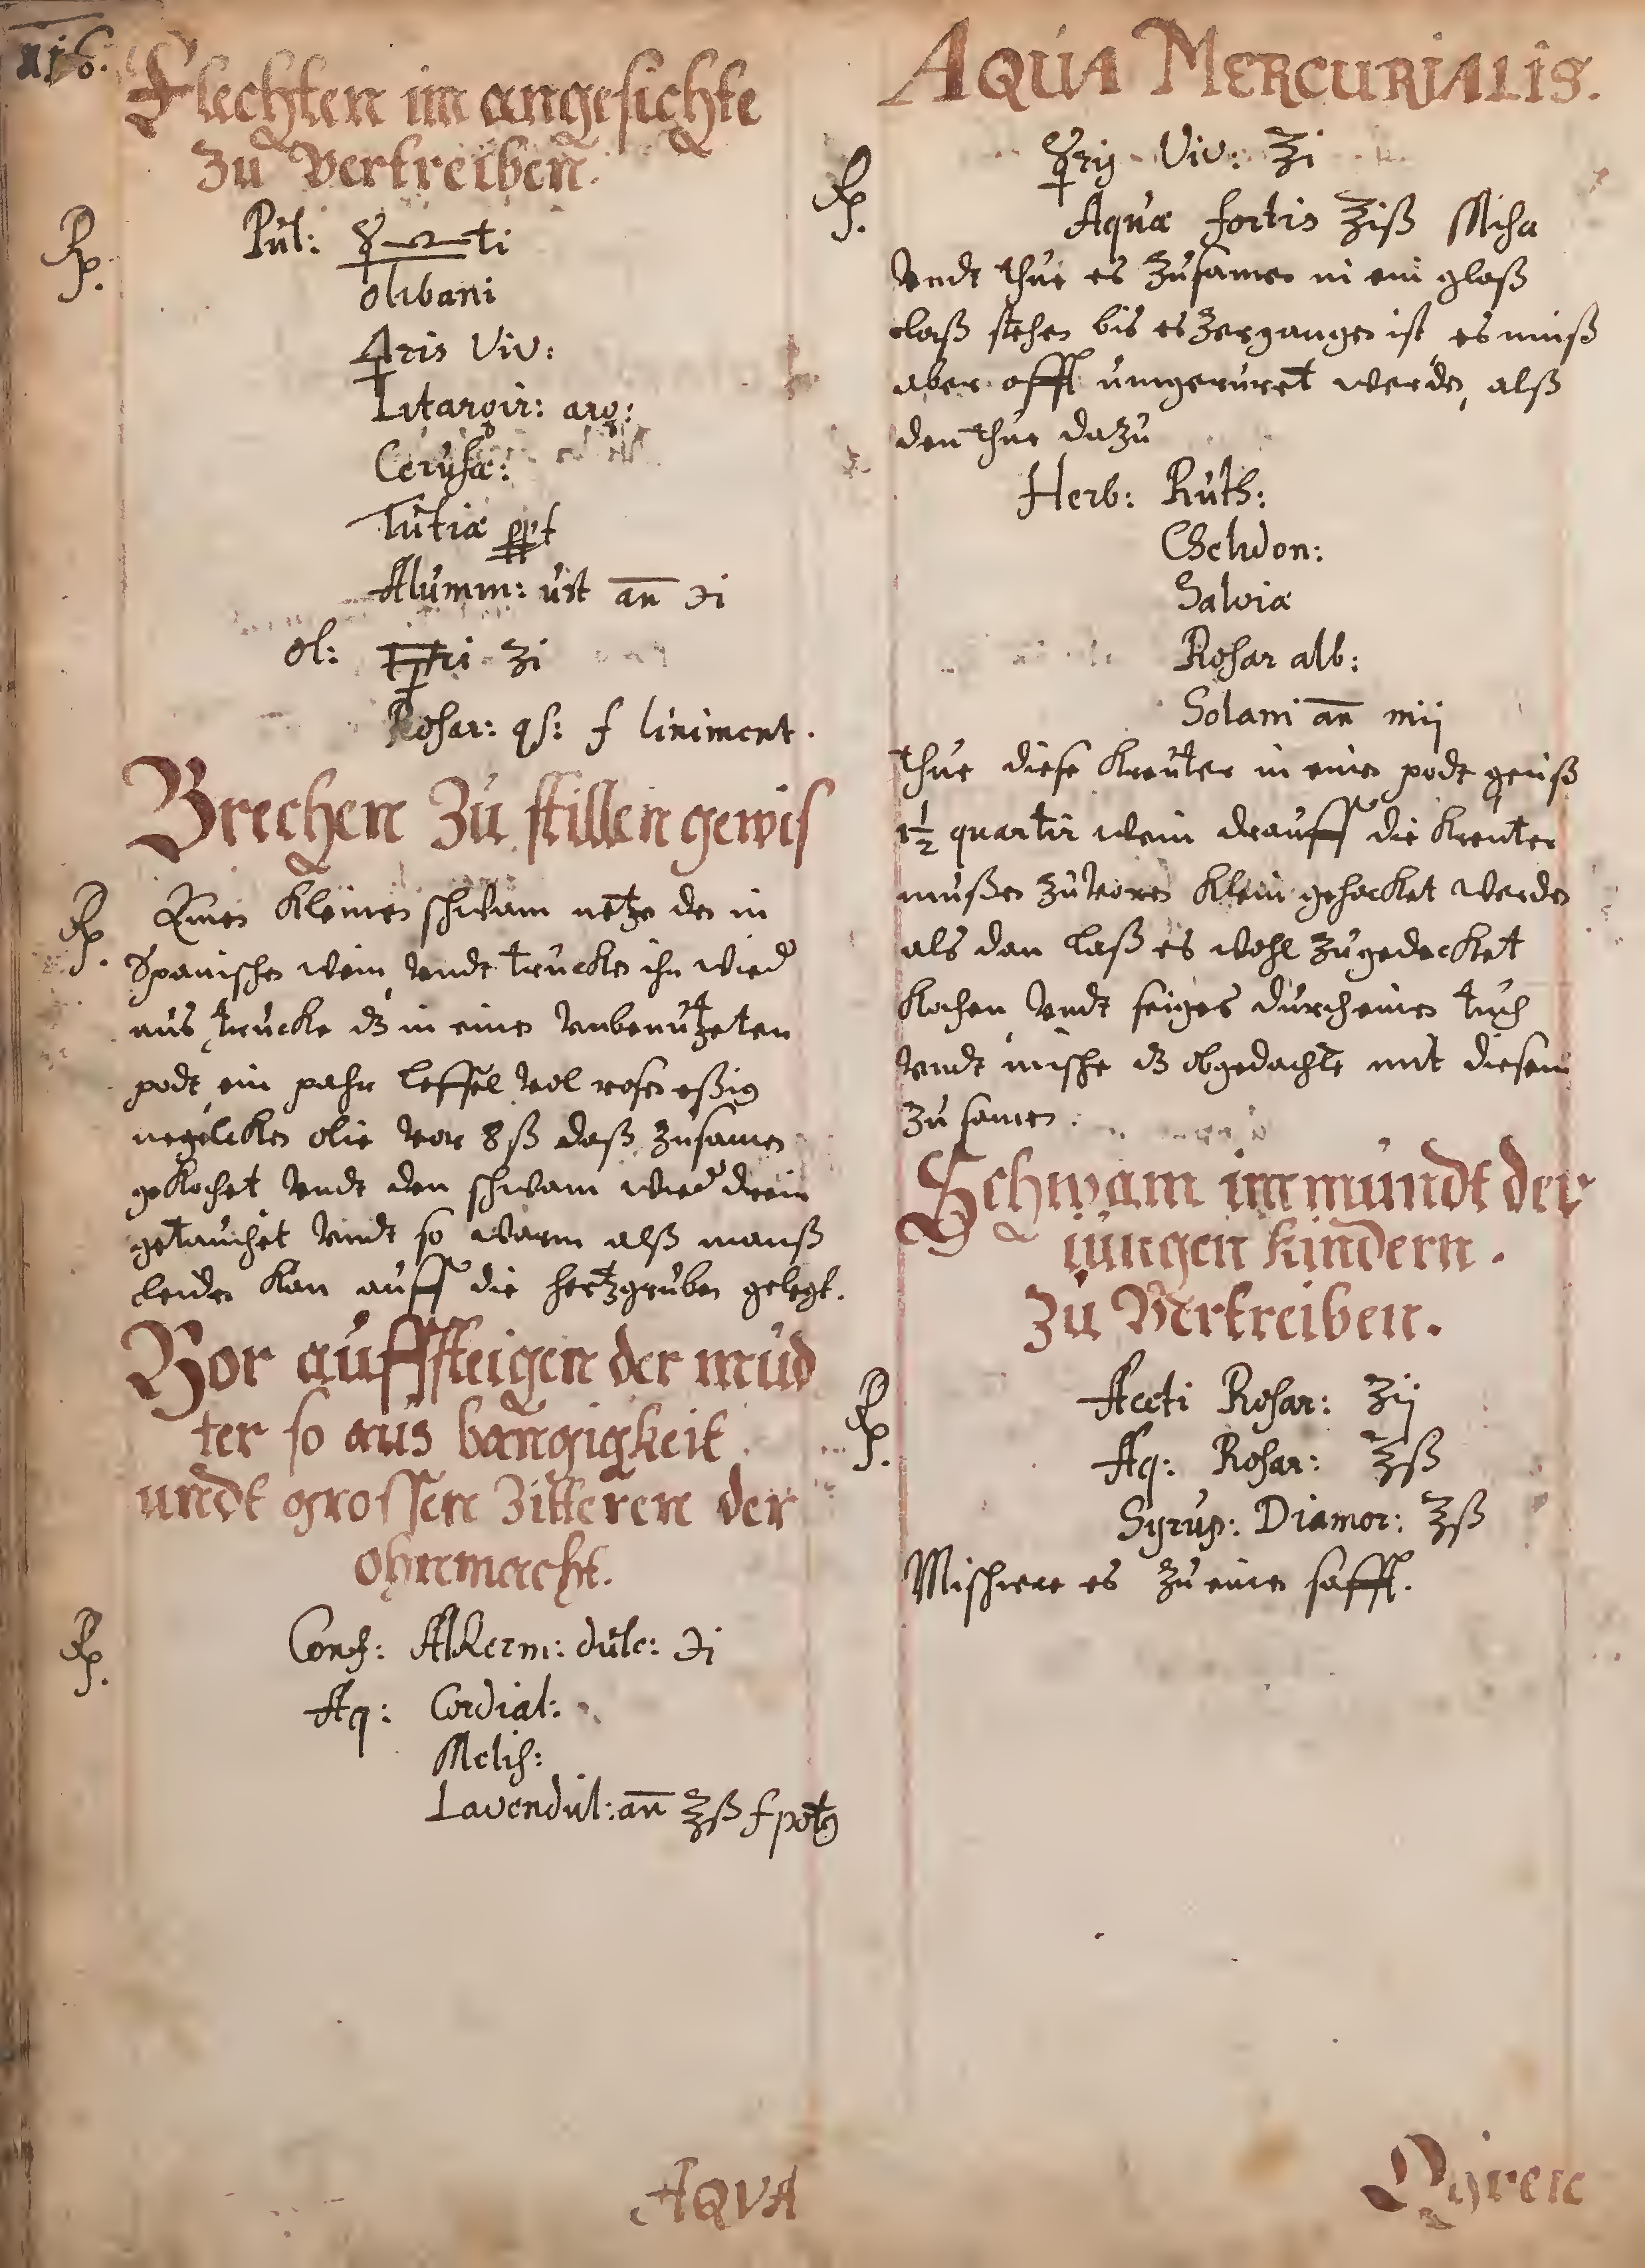 Flechten im angesichte
zu Vertreiben.
Rp. Pul: ☿ ♎ti
olibani
♃ris Viv:
Litargir: arg:
Cerusæ:
Tutiæ ppt
Alumin: ust an ℈i
ol: ri ʒi
Rosar: qs: f liniment.
Brechen Zu stillen gewis
Rp. Einen kleinen schwam netze den in
Spanischen wein, vndt trucken ihn wied
aus, trucke dz in einen vnbenutzeten
podt, ein pahr leffel vol rosen eßig
negelcken olie vor 8 ß daß zusamen
gekochet vndt den schwam wied drein
getauchet vndt so warm alß manß
leiden kan auff die hertzgruben gelegt.
Vor auffsteigen der mud
ter so aus bangigkeit
undt grossen Zitteren der
ohnmacht.
Rp. Conf: Alkerm: dulc: ℈i
Aq: Cordial:
Melis:
Lavendul: an ℥ß f potg
AQVA
AQUA MERCURIALIS.
Rp. ☿rij Viv: ℥i
Aquæ fortis ℥iß Misa
vndt thue es zusamen in ein glaß
laß stehen bis es zergangen ist, es muß
aber offt umgeruret werden, alß
den thue dazu
Herb: Ruth:
Chelidon:
Salviæ
Rosar alb:
Solani an mij
thue diese kreuter in einen podt geuß
1½ quartir wein drauff die kreuter
mußen zuvoren klein gehacket werden
als dan laß es wohl zugedecket
kochen vndt seiges durch einen tuch
vndt mische dz obgedachte mit diesem
zu samen.
Schwam im mundt der
iungen kindern.
zu Vertreiben.
Rp. Aceti Rosar: ʒij
Aq: Rosar: ℥ß
Syrup: Diamor: ℥ß
Mischere es zu einen safft.